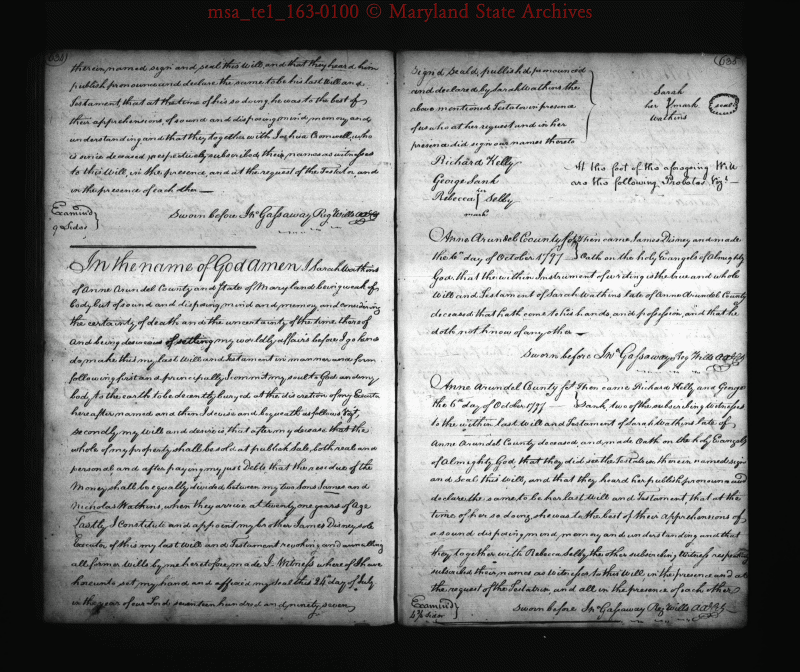 msa_te1_163-0100 © Maryland State Archives
therein named sign and seal this Will, and that they heard him
publish pronounce and declare the same to be his last Will and
Testament, that at the time of his so doing, he was to the best of
their apprehensions, of sound and disposing mind, memory and
understanding and that they together with Joshua Cromwell, who
is since deceased respectively subscribed their names as witnesses
to this Will, in the presence, and at the request of the Testator, and
in the presence of each other —
Examind
Sworn before Jno Gassaway Reg Wills
In the name of God Amen I Sarah Watkins
of Anne Arundel County and State of Maryland being weak of
body but of sound and disposing mind and memory, and considering
the certainty of death and the uncertainty of the time thereof
And being desirous of settling my worldly affairs before I go hence
do make this my last Will and Testament in manner and form
following first and principally I commit my soul to God and my
body to the earth to be decently buryed at the discretion of my Executor
hereafter named and then I devise and bequeath as follows Vizt,
secondly my will and desire is, that after my decease that the
whole of my property shall be sold at publick sale, both real and
personal and after paying my just Debts that the residue of the
Money shall be equally divided between my two Sons James and
Nicholas Watkins, when they arrive at twenty one years of Age
Lastly I Constitute and appoint my brother James Disney sole
Executor of this my last Will and Testament revoking and annulling
all former Wills by me heretofore made In Witness where of I have
hereunto set my hand and affixed my seal this 24th day of July
in the year of our Lord seventeen hundred and ninety seven
Signd Seald, publishd, pronounced
and declared by Sarah Watkins the
above mentioned Testatrix in presence
of us who at her request and in her
presence did sign our names thereto
Sarah
her mark
Watkins
seal
Richard Kelly
George Tank
Rebecca Selby
mark
At the foot of the aforegoing Will
are the following Probates Vizt —
Anne Arundel County sct Then came James Disney and made
the 6th day of October 1797 Oath on the holy Evangels of Almighty
God, that the within Instrument of writing is the true and whole
Will and Testament of Sarah Watkins late of Anne Arundel County
deceased that hath come to his hands, and possession, and that he
doth not know of any other —
Sworn before Jno Gassaway Reg Wills
Anne Arundel County sct Then came Richard Kelly and George
the 6th day of October 1797 Tank, two of the subscribing Witnesses
to the within last Will and Testament of Sarah Watkins late of
Anne Arundel County deceased, and made Oath on the holy Evangels
of Almighty God, that they did see the Testatrix therein named sign
and Seal this Will, and that they heard her publish pronounce and
declare the same to be her last Will and Testament that at the
time of her so doing, she was to the best of their apprehensions of
a sound disposing mind, memory and understanding and that
they together with Rebecca Selby the other subscribing Witness respectively
subscribed their names as Witnesses to this Will, in the presence and at
the request of the Testatrix and all in the presence of each other
Examind
Sworn before Jno Gassaway Reg Wills